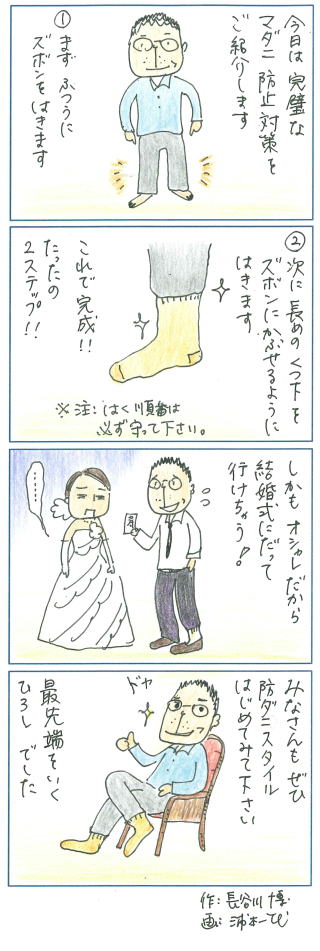 今日は完璧な
マダニ防止対策を
ご紹介します
①
まずふつうに
ズボンをはきます
②次に長めのくつ下を
ズボンにかぶせるように
はきます
これで完成!!
たったの
2ステップ!!
※注:はく順番は
必ず守って下さい。
しかもオシャレだから
結婚式にだって
行けちゃう!
みなさんもぜひ
防ダニスタイル
はじめてみて下さい
ドヤ
最先端をいく
ひろしでした
作:長谷川 博
画: